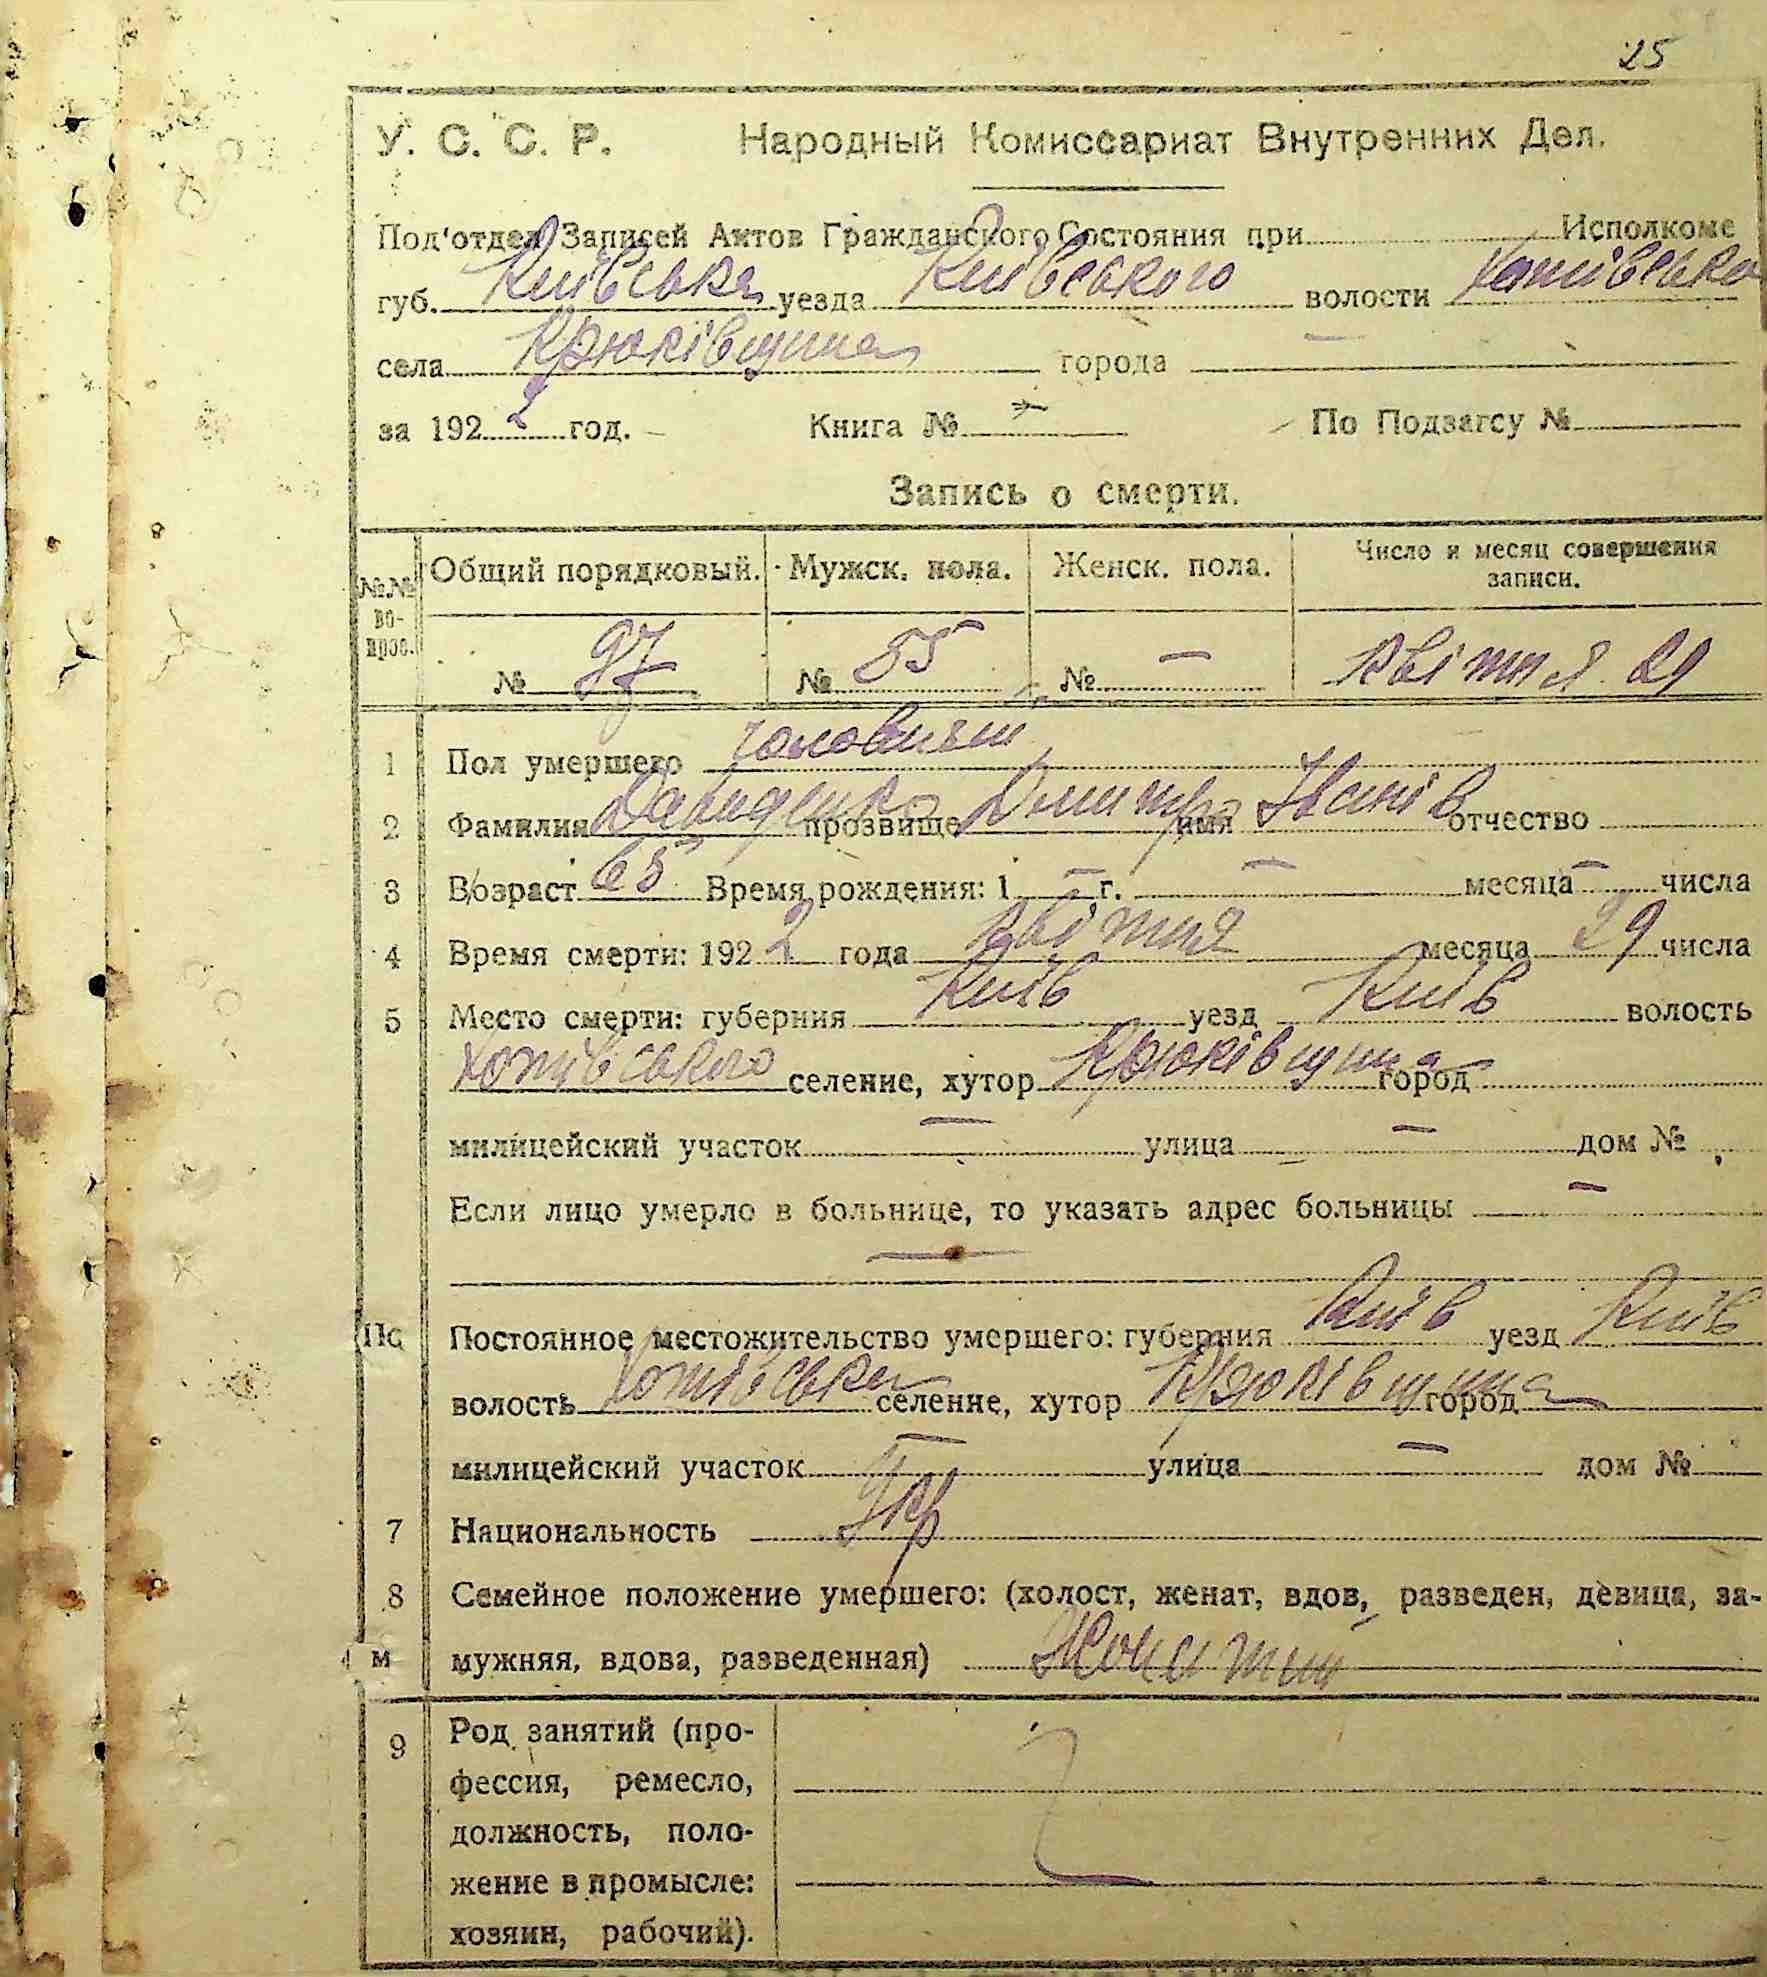 25
У. С. С. Р. Народный Комиссариат Внутренних Дел.
Под'отдел Записей Актов Гражданского Состояния при Исполкоме
губ. Київська уезда Київського волости Хотівсько
села Крюківщина города —
за 1922 год. Книга № По Подзагсу №
Запись о смерти.
№№ вопрос. Общий порядковый. Мужск. пола. Женск. пола. Число и месяц совершения записи.
№ 97 № 55 № — квітня 29
1 Пол умершего чоловичий
2 Фамилия Давиденко прозвище Дмитро имя Іванів отчество
3 Возраст 65 Время рождения: 1 — г. — месяца — числа
4 Время смерти: 1922 года квітня месяца 29 числа
5 Место смерти: губерния Київ уезд Київ волость
Хотівського селение, хутор Крюківщина город
милицейский участок — улица — дом №
Если лицо умерло в больнице, то указать адрес больницы —
—
Постоянное местожительство умершего: губерния Київ уезд Київ
волость Хотівська селение, хутор Крюківщина город
милицейский участок — улица — дом №
7 Национальность Укр
8 Семейное положение умершего: (холост, женат, вдов, разведен, девица, за-
мужняя, вдова, разведенная) Жонатий
9 Род занятий (про-
фессия, ремесло,
должность, поло-
жение в промысле:
хозяин, рабочий).